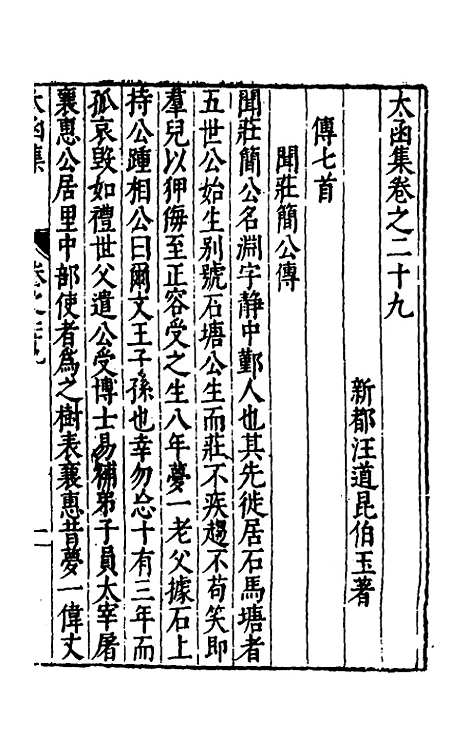 太函集卷之二十九
新都汪道昆伯玉著
傳七首
聞莊簡公傳
聞莊簡公名淵字靜中鄞人也其先徙居石馬塘者
五世公始生别號石塘公生而莊不疾趨不苟笑即
羣兒以狎侮至正容受之生八年夢一老父據石上
持公踵相公曰爾文王子孫也幸勿忘十有三年而
孤哀毀如禮世父遣公受博士易補弟子員太宰屠
襄惠公居里中部使者爲之樹表襄惠昔夢一偉丈
太函集
卷之二十九
一